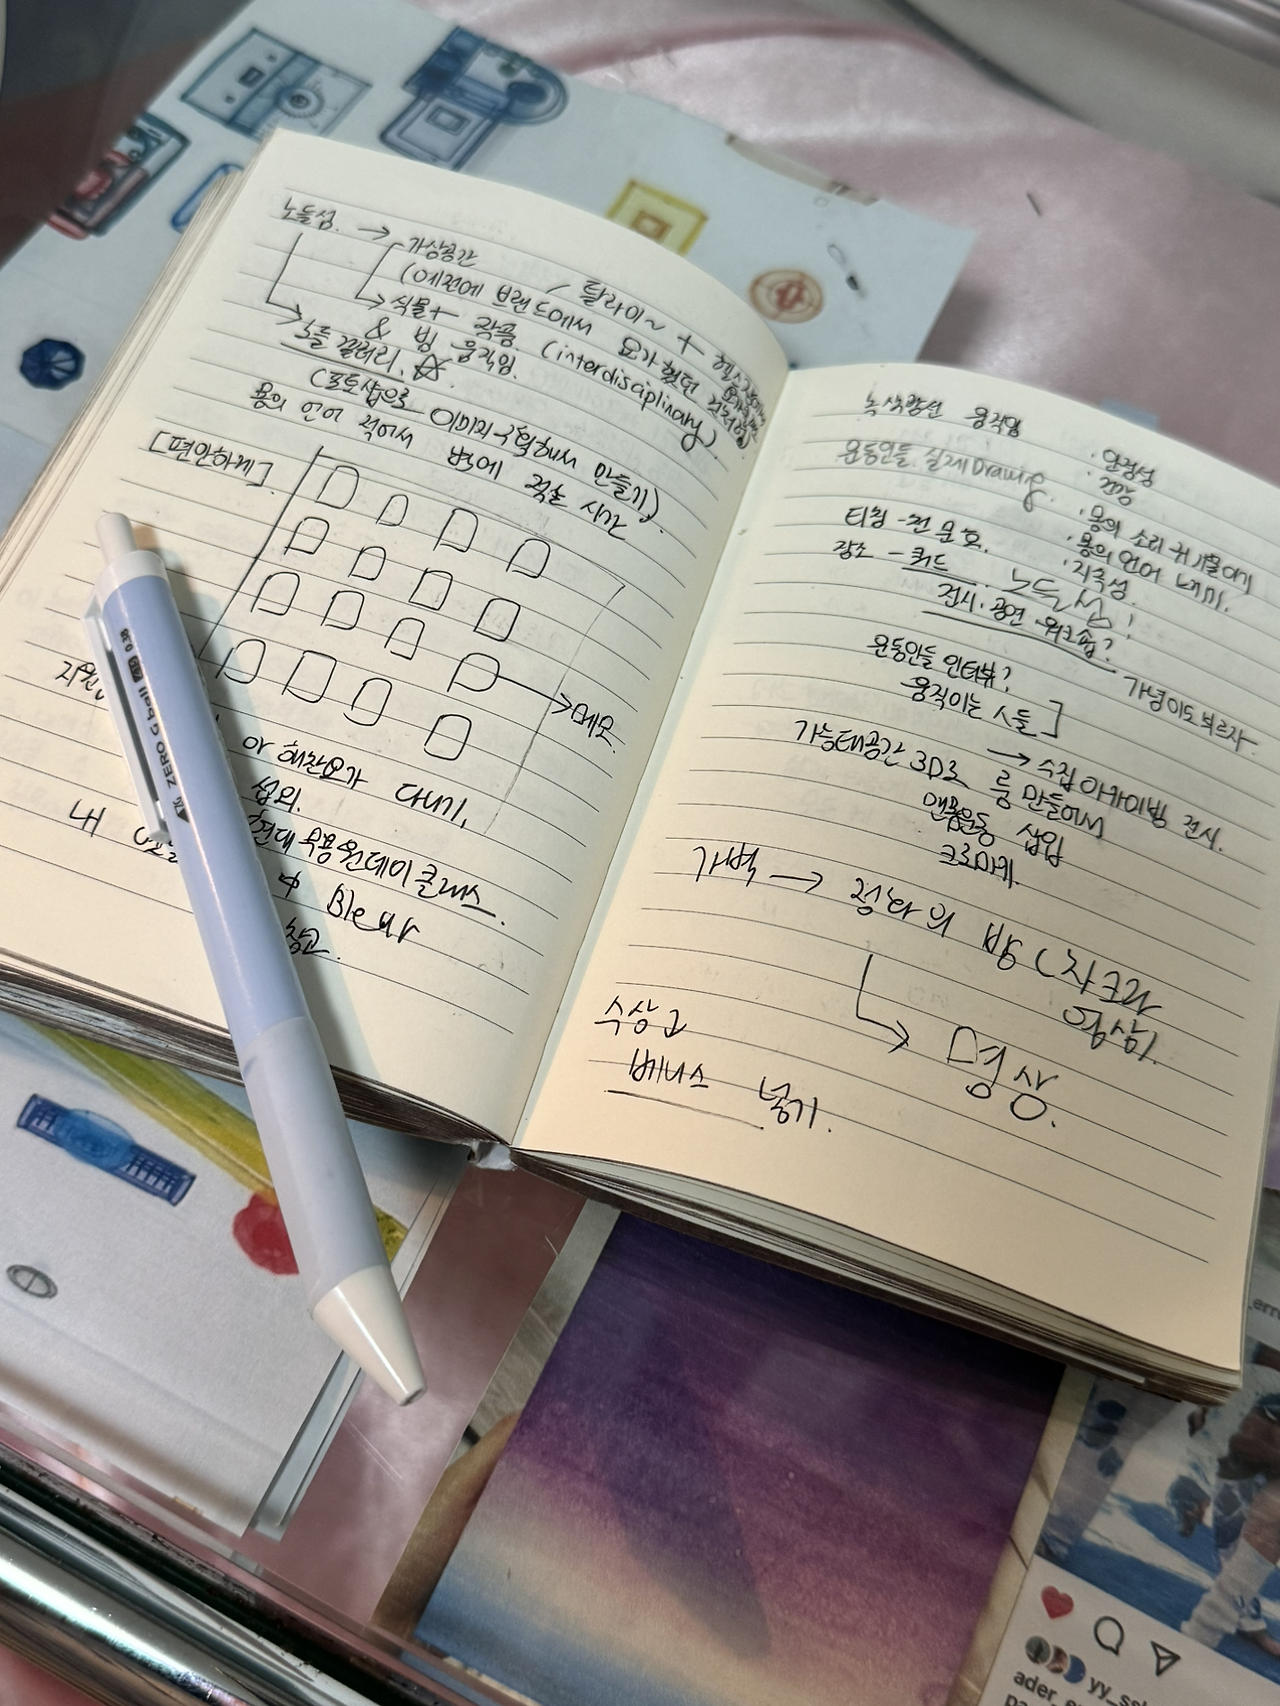 노들섬. → 가상공간 / 달라이~ + 헬스
(예전에 브랜드에서 요가했던 것처럼
식물 + 작품 (interdisciplinary)
& 빙 움직임.
노들 갤러리. ☆
(포토샵으로 이미지 구획해서 만들기)
몸의 언어 적어서 벽에 적는 시간
[편안하게]
→ 메모
지원
or 해찬요가 다니기,
섭외.
내
현대무용 원데이 클래스.
Bleur
참고.
녹색광선 움직임
운동인들 실제 Drawing.
· 안정성
· 건강
· 몸의 소리 귀 기울이기
· 몸의 언어 느끼기.
· 지속성
티칭 - 전문호.
장소 - 쿼드 노들섬!
전시·공연·워크숍?
운동인들 인터뷰?
움직이는 사람들 ]
가념이도 부르자
→ 수집 아카이빙 전시.
가능태공간 3D로 룸 만들어서
맨몸운동 삽입
크로마키.
가벽 → 정화의 방 (차크라
영상).
명상.
수상고
베니스 넣기.
ZERO G ball 0.38
yy_ss
ader_e
pa